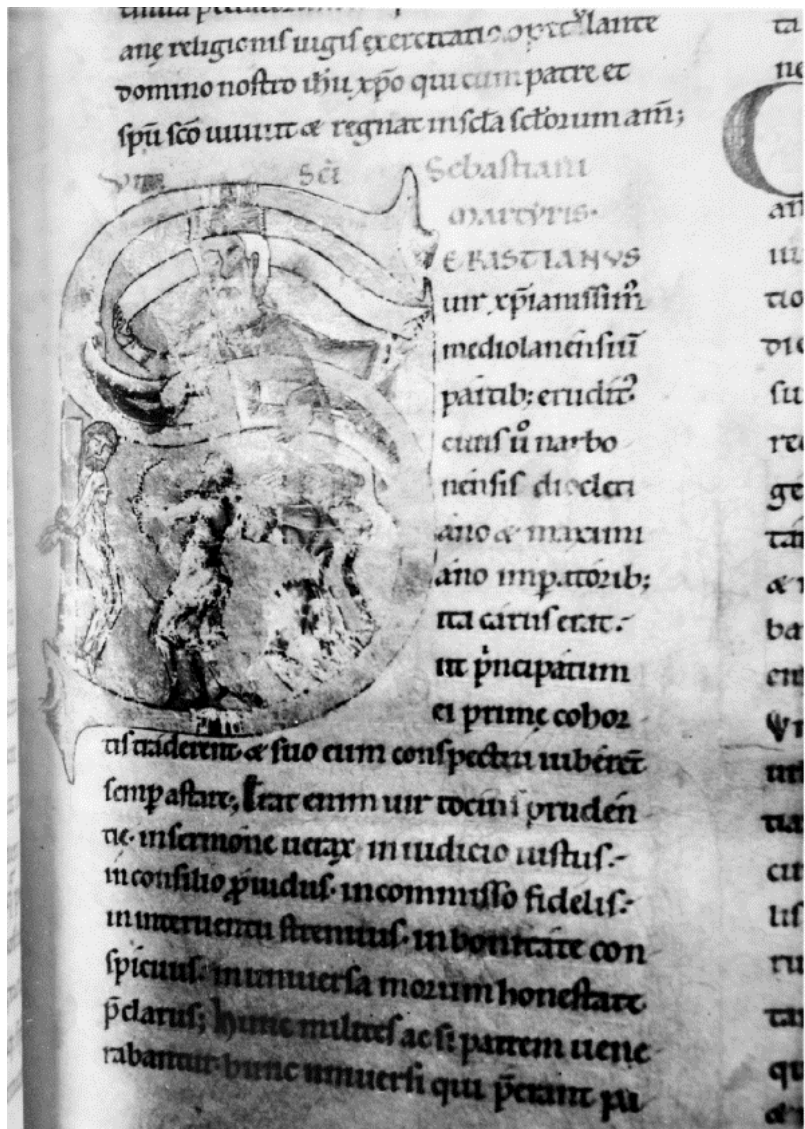 anę religionis iugis exercitatio
domino nostro ihu xp̄o qui cum patre et
sp̄u sc̄o uiuit & regnat in scl̄a scl̄orum am̄;
Sc̄i Sebastiani
martyris.
EBASTIANUS
uir xp̄ianissim᷒
mediolanensiū
partib; erudit᷒
ciuis ů narbo
nensis diocleti
ano & maximi
ano imꝑatorib;
ita carus erat.
ut p̍ncipatum
ei primę cohor
tis traderent & suo eum conspectui iuberēt
semꝑ astare; Erat enim uir tocius pruden
tię. in sermone uerax in iudicio iustus.
in consilio ꝓuidus. in commisso fidelis.
in interuentu strenuus. in bonitate con
spicuus. in uniuersa morum honestate
p̄clarus; hunc milites ac si patrem uene
rabantur. hunc uniuersi qui p̄erant pa
ta
ne
C
an
tio
die
su
re
ge
tan
& 
ba
em
tia
cu
lis
ru
tan
qu